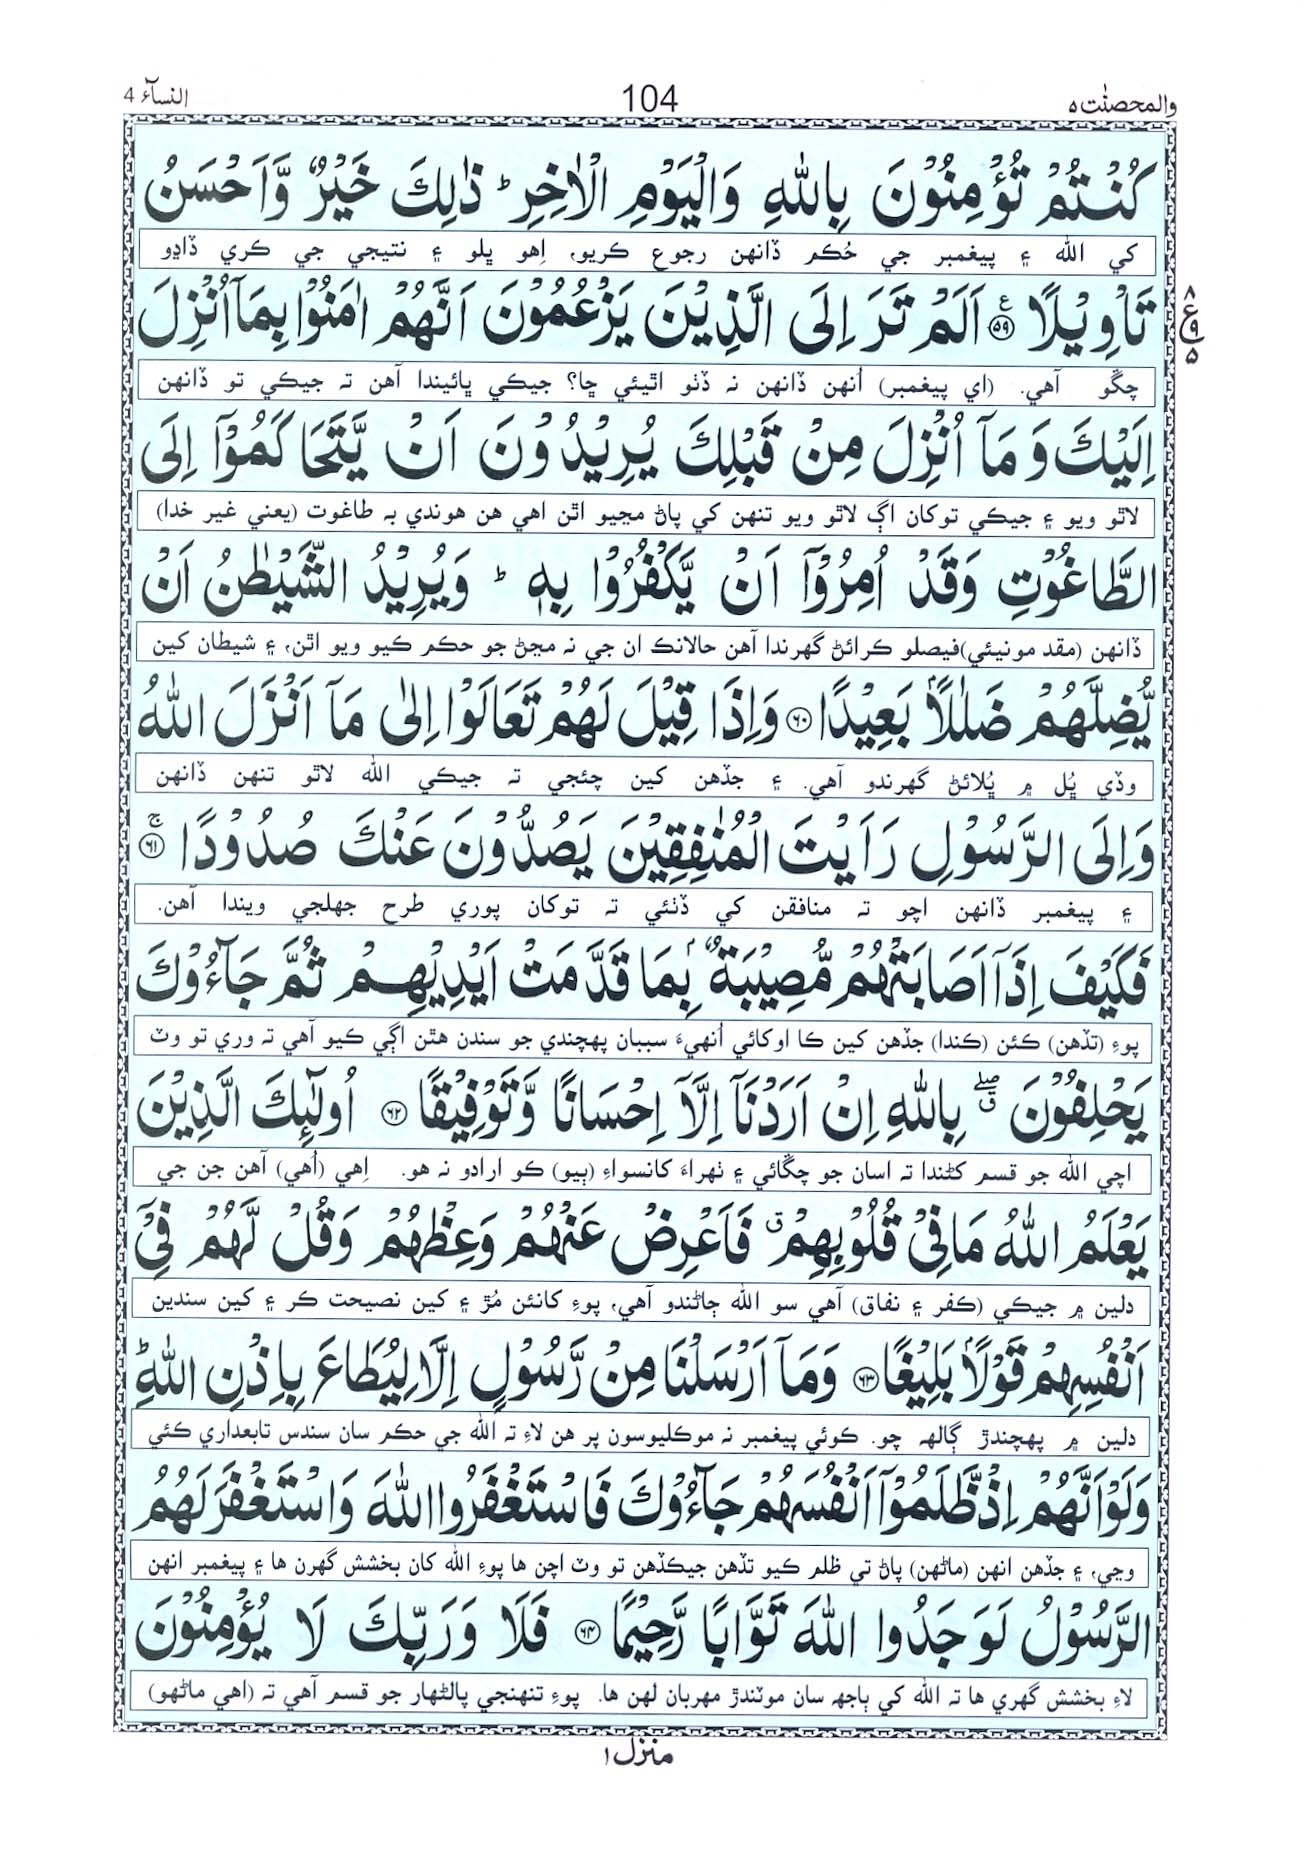 والمحصنٰت ٥ 104 النسآء 4
كُنْتُمْ تُؤْمِنُوْنَ بِاللّٰهِ وَالْيَوْمِ الْاٰخِرِ ؕ ذٰلِكَ خَيْرٌ وَّاَحْسَنُ
کي الله ۽ پيغمبر جي حُڪم ڏانهن رجوع ڪريو، اِهو ڀلو ۽ نتيجي جي ڪري ڏاڍو
تَاْوِيْلًا ﴿۵۹﴾ ع اَلَمْ تَرَ اِلَى الَّذِيْنَ يَزْعُمُوْنَ اَنَّهُمْ اٰمَنُوْا بِمَاۤ اُنْزِلَ
۸ ع ۹ ۵
چڱو آهي. (اي پيغمبر) اُنهن ڏانهن نہ ڏٺو اٿيئي ڇا؟ جيڪي ڀائيندا آهن تہ جيڪي تو ڏانهن
اِلَيْكَ وَ مَاۤ اُنْزِلَ مِنْ قَبْلِكَ يُرِيْدُوْنَ اَنْ يَّتَحَاكَمُوْۤا اِلَى
لاٿو ويو ۽ جيڪي توکان اڳ لاٿو ويو تنهن کي پاڻ مڃيو اٿن اهي هن هوندي بہ طاغوت (يعني غير خدا)
الطَّاغُوْتِ وَقَدْ اُمِرُوْۤا اَنْ يَّكْفُرُوْا بِهٖ ؕ وَيُرِيْدُ الشَّيْطٰنُ اَنْ
ڏانهن (مقد مونيئي)فيصلو ڪرائڻ گهرندا آهن حالانڪ ان جي نہ مڃڻ جو حڪم ڪيو ويو اٿن، ۽ شيطان کين
يُّضِلَّهُمْ ضَلٰلًاۢ بَعِيْدًا ﴿۶۰﴾ وَاِذَا قِيْلَ لَهُمْ تَعَالَوْا اِلٰى مَاۤ اَنْزَلَ اللّٰهُ
وڏي ڀُل ۾ ڀُلائڻ گهرندو آهي. ۽ جڏهن کين چئجي تہ جيڪي الله لاٿو تنهن ڏانهن
وَاِلَى الرَّسُوْلِ رَاَيْتَ الْمُنٰفِقِيْنَ يَصُدُّوْنَ عَنْكَ صُدُوْدًا ﴿۶۱﴾ ج
۽ پيغمبر ڏانهن اچو تہ منافقن کي ڏٺئي تہ توکان پوري طرح جهلجي ويندا آهن.
فَكَيْفَ اِذَاۤ اَصَابَتْهُمْ مُّصِيْبَةٌۢ بِمَا قَدَّمَتْ اَيْدِيْهِمْ ثُمَّ جَآءُوْكَ
پوءِ (تڏهن) ڪئن (ڪندا) جڏهن کين ڪا اوکائي اُنهيءَ سببان پهچندي جو سندن هٿن اڳي ڪيو آهي تہ وري تو وٽ
يَحْلِفُوْنَ ۖق بِاللّٰهِ اِنْ اَرَدْنَاۤ اِلَّاۤ اِحْسَانًا وَّتَوْفِيْقًا ﴿۶۲﴾ اُولٰٓئِكَ الَّذِيْنَ
اچي الله جو قسم کڻندا تہ اسان جو چڱائي ۽ ٺهراءَ کانسواءِ (ٻيو) ڪو ارادو نہ هو. اِهي (اُهي) آهن جن جي
يَعْلَمُ اللّٰهُ مَا فِيْ قُلُوْبِهِمْ ۗ فَاَعْرِضْ عَنْهُمْ وَعِظْهُمْ وَقُلْ لَّهُمْ فِيْۤ
دلين ۾ جيڪي (ڪفر ۽ نفاق) آهي سو الله ڄاڻندو آهي، پوءِ کانئن مُڙ ۽ کين نصيحت ڪر ۽ کين سندين
اَنْفُسِهِمْ قَوْلًاۢ بَلِيْغًا ﴿۶۳﴾ وَمَاۤ اَرْسَلْنَا مِنْ رَّسُوْلٍ اِلَّا لِيُطَاعَ بِاِذْنِ اللّٰهِ ؕ
دلين ۾ پهچندڙ ڳالهہ چو. ڪوئي پيغمبر نہ موڪليوسون پر هن لاءِ تہ الله جي حڪم سان سندس تابعداري ڪئي
وَلَوْ اَنَّهُمْ اِذْ ظَّلَمُوْۤا اَنْفُسَهُمْ جَآءُوْكَ فَاسْتَغْفَرُوا اللّٰهَ وَاسْتَغْفَرَ لَهُمُ
وڃي، ۽ جڏهن انهن (ماڻهن) پاڻ تي ظلم ڪيو تڏهن جيڪڏهن تو وٽ اچن ها پوءِ الله کان بخشش گهرن ها ۽ پيغمبر انهن
الرَّسُوْلُ لَوَجَدُوا اللّٰهَ تَوَّابًا رَّحِيْمًا ﴿۶۴﴾ فَلَا وَرَبِّكَ لَا يُؤْمِنُوْنَ
لاءِ بخشش گهري ها تہ الله کي ٻاجهہ سان موٽندڙ مهربان لهن ها. پوءِ تنهنجي پالڻهار جو قسم آهي تہ (اهي ماڻهو)
منزل ١